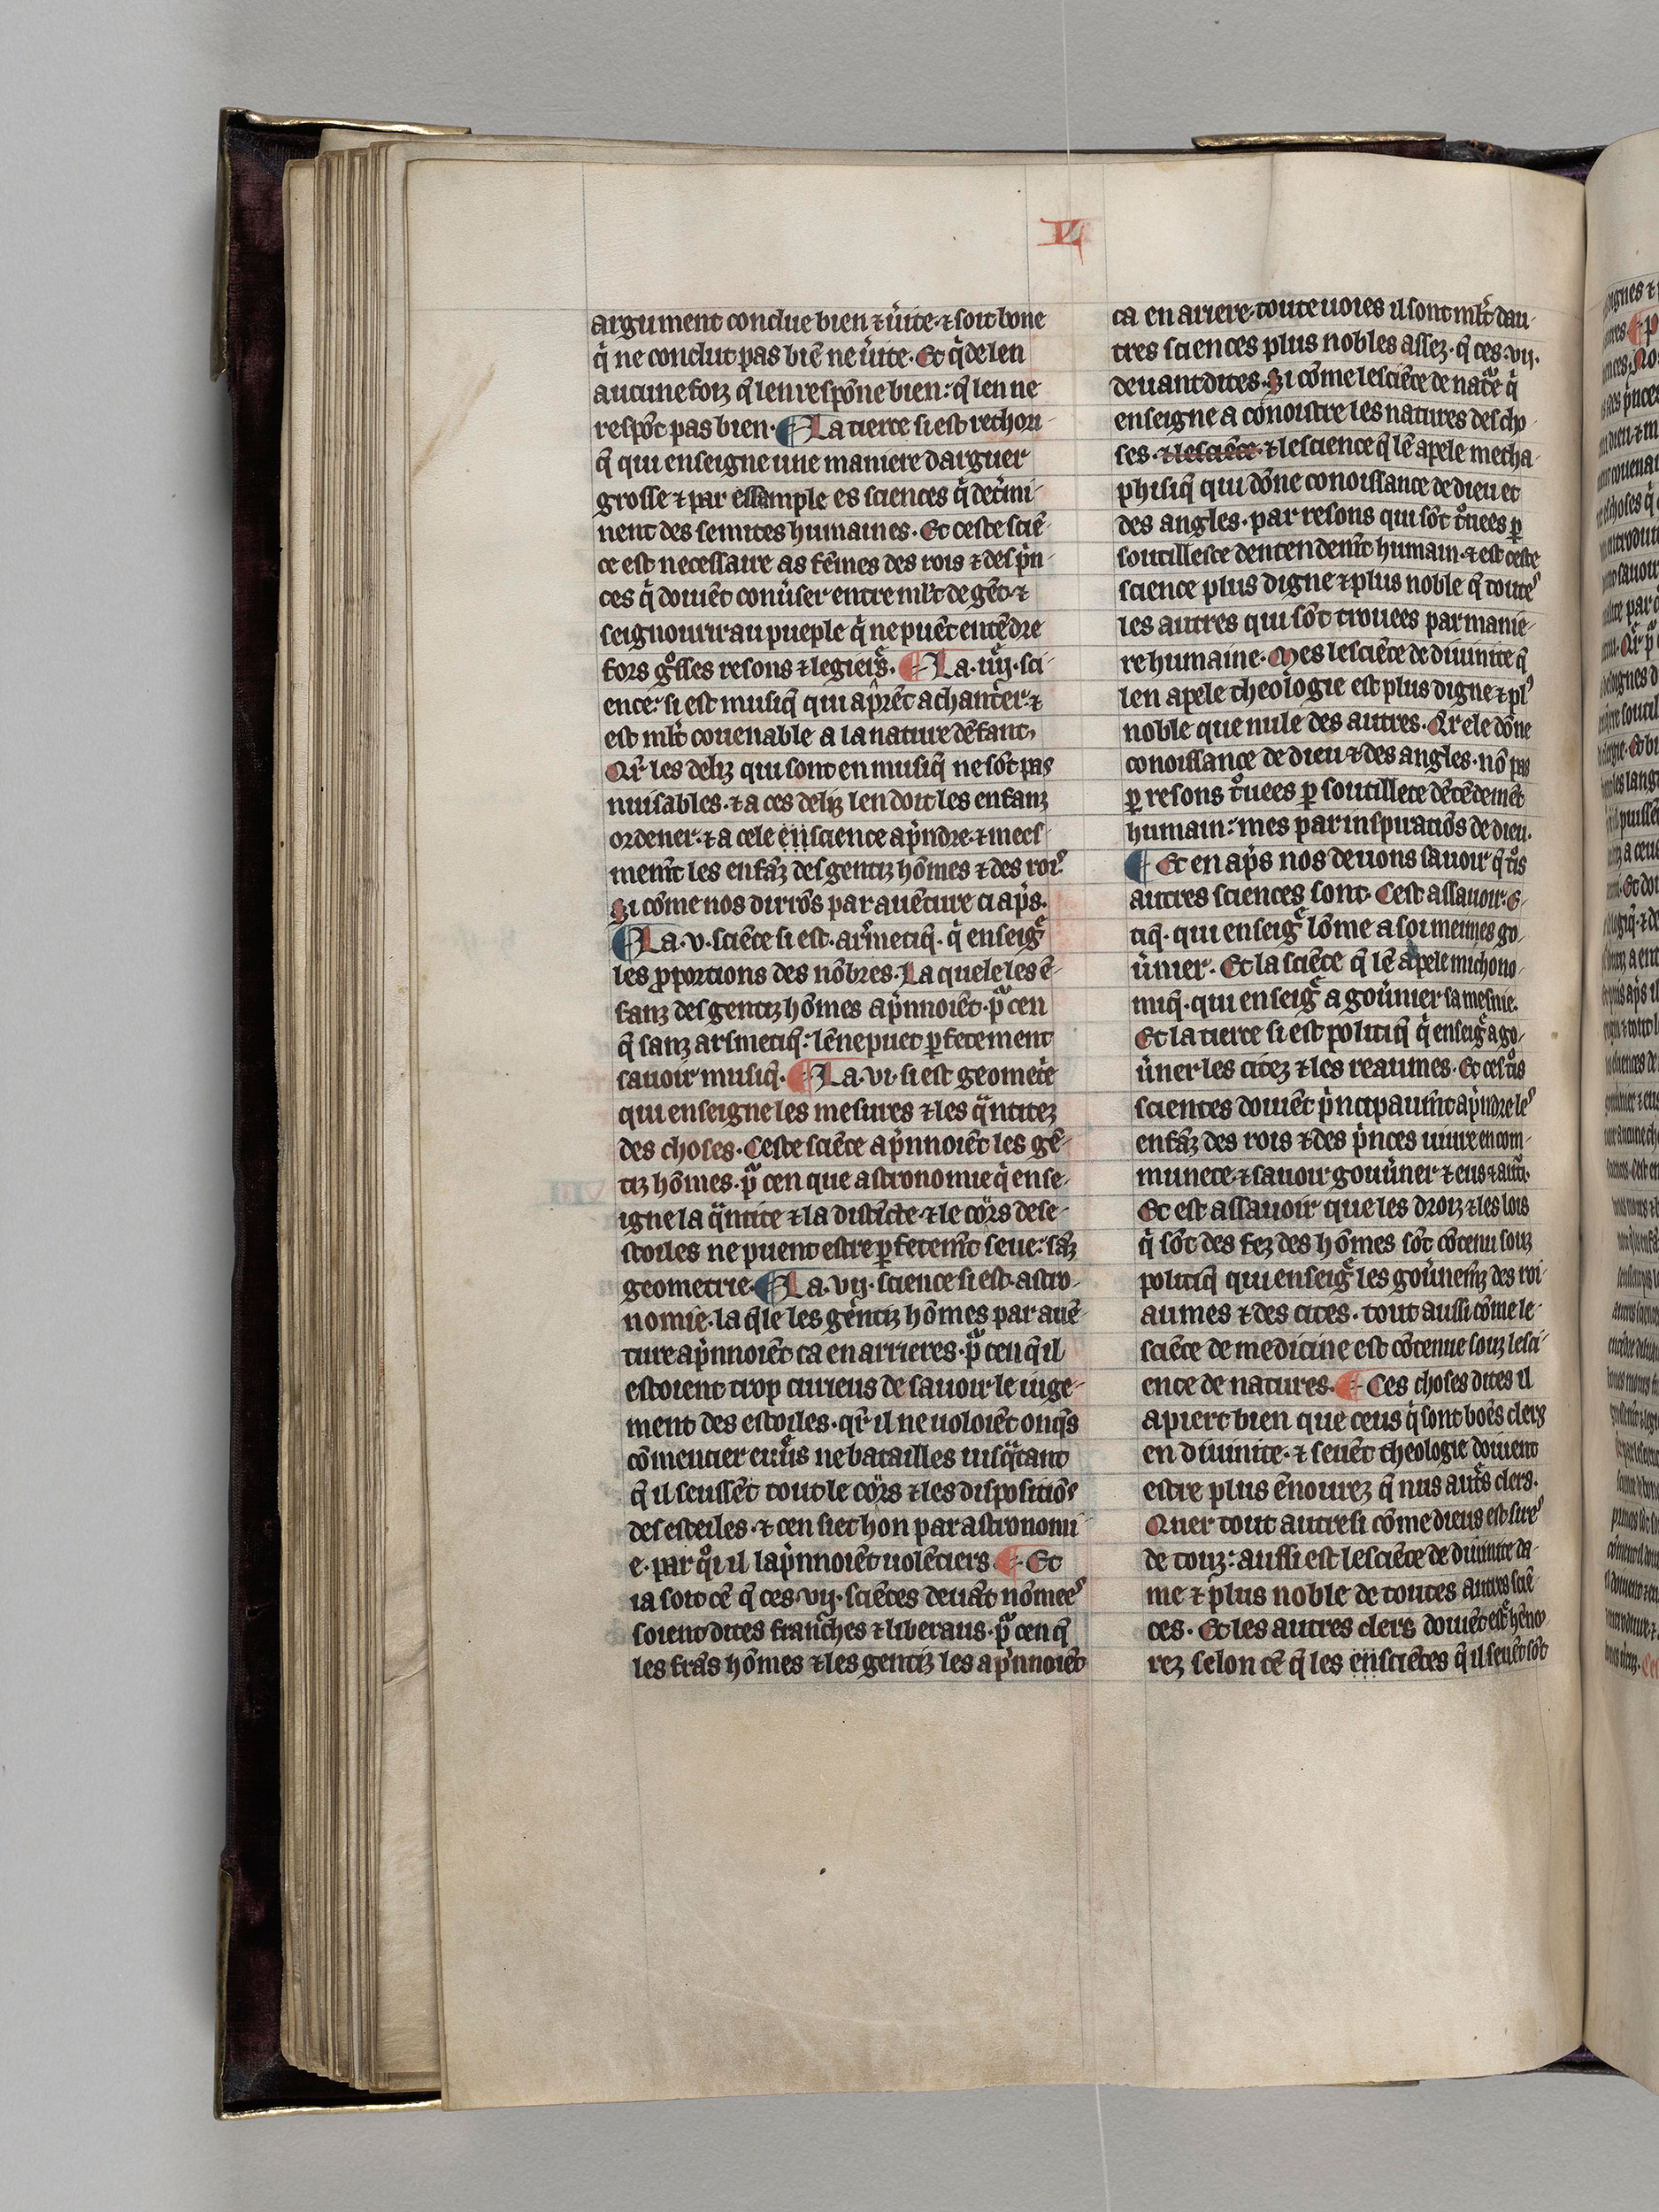 IJ
argument conclue bien ⁊ uͥite · ⁊ soit bone
qͥ ne conclut pas biē ne uͥite · Et qͥ de len
aucune foiz q̄ len respōne bien : q̄ len ne
respōt pas bien · ¶ La tierce si est rethori-
q̄ qui enseigne une maniere darguer
grosse ⁊ par essample es sciences qͥ det̾mi-
nent des sennites humaines · Et ceste sciē-
ce est necessaire as fēmes des rois ⁊ des pͥn-
ces qͥ doiuēt conu̾ser entre ml̄t de gēt · ⁊
seignourir au pueple qͥ ne puēt entēdre
fors gͦsses resons ⁊ legieͬs . ¶ La · iiij · sci-
ence : si est musiq̄ qui ap̄rēt a chant̾er · ⁊
est ml̄t couenable a la nature dēfant ,
Qr̄ les deliz qui sont en musiq̄ ne sōt pas
nuisables · ⁊ a ces deliz len doit les enfanz
ordener · ⁊ a cele eṇscience apͥndre · ⁊ mees-
mem̄t les enfāz des gentiz hōmes ⁊ des roiˢ
Si cōme nos dirrōs par auēture ci ap̾s .
¶ La · v · sciēce si est · arsmetiq̄ · qͥ enseigͤ
les ꝓportions des nōbres · La quele les ē-
fanz des gentiz hōmes apͥnnoiēt · pͣ cen
q̄ sanz arsmetiq̄ : lē ne puet ꝑfetement
sauoir musiq̄ · ¶ La · vi · si est geomet̾e
qui enseigne les mesures ⁊ les qͣntitez
des choses · Ceste sciēce apͥnnoiēt les gē-
tiz hōmes · pͣ cen que astronomie qͥ ense-
igne la qͣntite ⁊ la distācte · ⁊ le cors des e-
stoiles ne puent estre ꝑfetem̄t seue : sāz
geometrie · ¶ La · vij · science si est · astro-
nomie · la q̄le les gentiz hōmes par auē-
ture apͥnnoiēt ca en arrieres · pͣ cen q̄ il
estoient trop curieus de sauoir le iuge-
ment des estoiles · qr̄ il ne uoloiēt onq̄s
cōmencier euures ne batailles iusqͣtant
q̄ il seussēt tout le cors ⁊ les dispositiōs
des estoiles · ⁊ cen siet hon par astronomi-
e · par qͦi il lapͥnnoiēt uolētiers ¶ Et
ia soit cē q̄ ces · vij · sciēces deuāt nōmeeˢ
soient dites franches ⁊ liberaus · pͣ cen q̄
les frās hōmes ⁊ les gentiz les apͥnnoiēt
ca en ariere · toute uoies il sont ml̄t dau-
tres sciences plus nobles assez · q̄ ces · vij .
deuant dites · Si cōme le sciēce de natͬe qͥ
enseigne a conoistre les natures des cho-
ses · ⁊ le sciēce · ⁊ le science q̄ lē apele metha-
phisiq̄ qui dōne conoissance de dieu et
des angles · par resons qui sōt tͦuees ꝑ
soutillesce dentendem̄t humain · ⁊ est ceste
science plus digne ⁊ plus noble q̄ touteˢ
les autres qui sōt trouees par manie-
re humaine · Mes le sciēce de diuinite q̄
len apele theologie est plus digne ⁊ plˀ
noble que nule des autres · Qr̄ ele dōne
conoissance de dieu ⁊ des angles · nō pas
ꝑ resons tͦuees ꝑ soutillete dētēdemēt
humain : mes par inspiratiōs de dieu .
¶ Et en ap̾s nos deuons sauoir q̄ tͦis
autres sciences sont · Cest assauoir · e-
tiq̄ · qui enseigͤ lōme a soi meimes go-
u̾ner · Et la sciēce q̄ lē apele michono-
miq̄ · qui enseigͤ a gou̾ner sa mesnie .
Et la tierce si est politiq̄ qͥ enseigͤ a go-
u̾ner les citez ⁊ les reaumes · Et ces tͦis
sciences doiuēt pͥncipaum̄t apͥndre leˢ
enfāz des rois ⁊ des pͥnces uiure en com-
munete · ⁊ sauoir gou̾ner ⁊ eus ⁊ autͬi .
Et est assauoir que les droiz ⁊ les lois
qͥ sōt des fez des hōmes sōt cōtenu souz
politiq̄ qui enseigͤ les gou̾nem̄z des roi-
aumes ⁊ des cites · tout aussi cōme le
sciēce de medicine est cōtenue souz le sci-
ence de natures . ¶ Ces choses dites il
apiert bien que ceus qͥ sont boēs clers
en diuinite · ⁊ seuēt theologie doiuent
estre plus ēnourez q̄ nus autͬs clers .
Quer tout autresi cōme dieus est sireˢ
de touz : aussi est le sciēce de diuinite da-
me ⁊ plus noble de toutes autres sciē-
ces · Et les autres clers doiuēt estͬ hēno-
rez selon cē q̄ les eṇsciētes q̄ il seuēt sōt